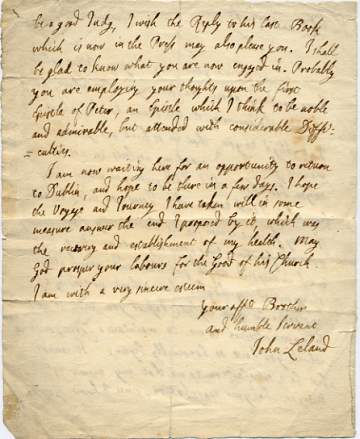 be a good Judg, I wish the Reply to his last Book
which is now in the Press may also please you. I shall
be glad to know what you are now engaged in. Probably
you are employing your thoughts upon the first
Epistle of Peter, an Epistle which I think to be noble
and admirable, but attended with considerable Diffi-
=culties.
I am now waiting here for an opportunity to return
to Dublin, and hope to be there in a few days. I hope
the Voyage and Journey I have taken will in some
measure answer the end I proposed by it, which was
the recovery and establishment of my health. May
God prosper your labours for the Good of his Church
I am with a very sincere esteem
your affd Brother
and humble Servent
John Leland